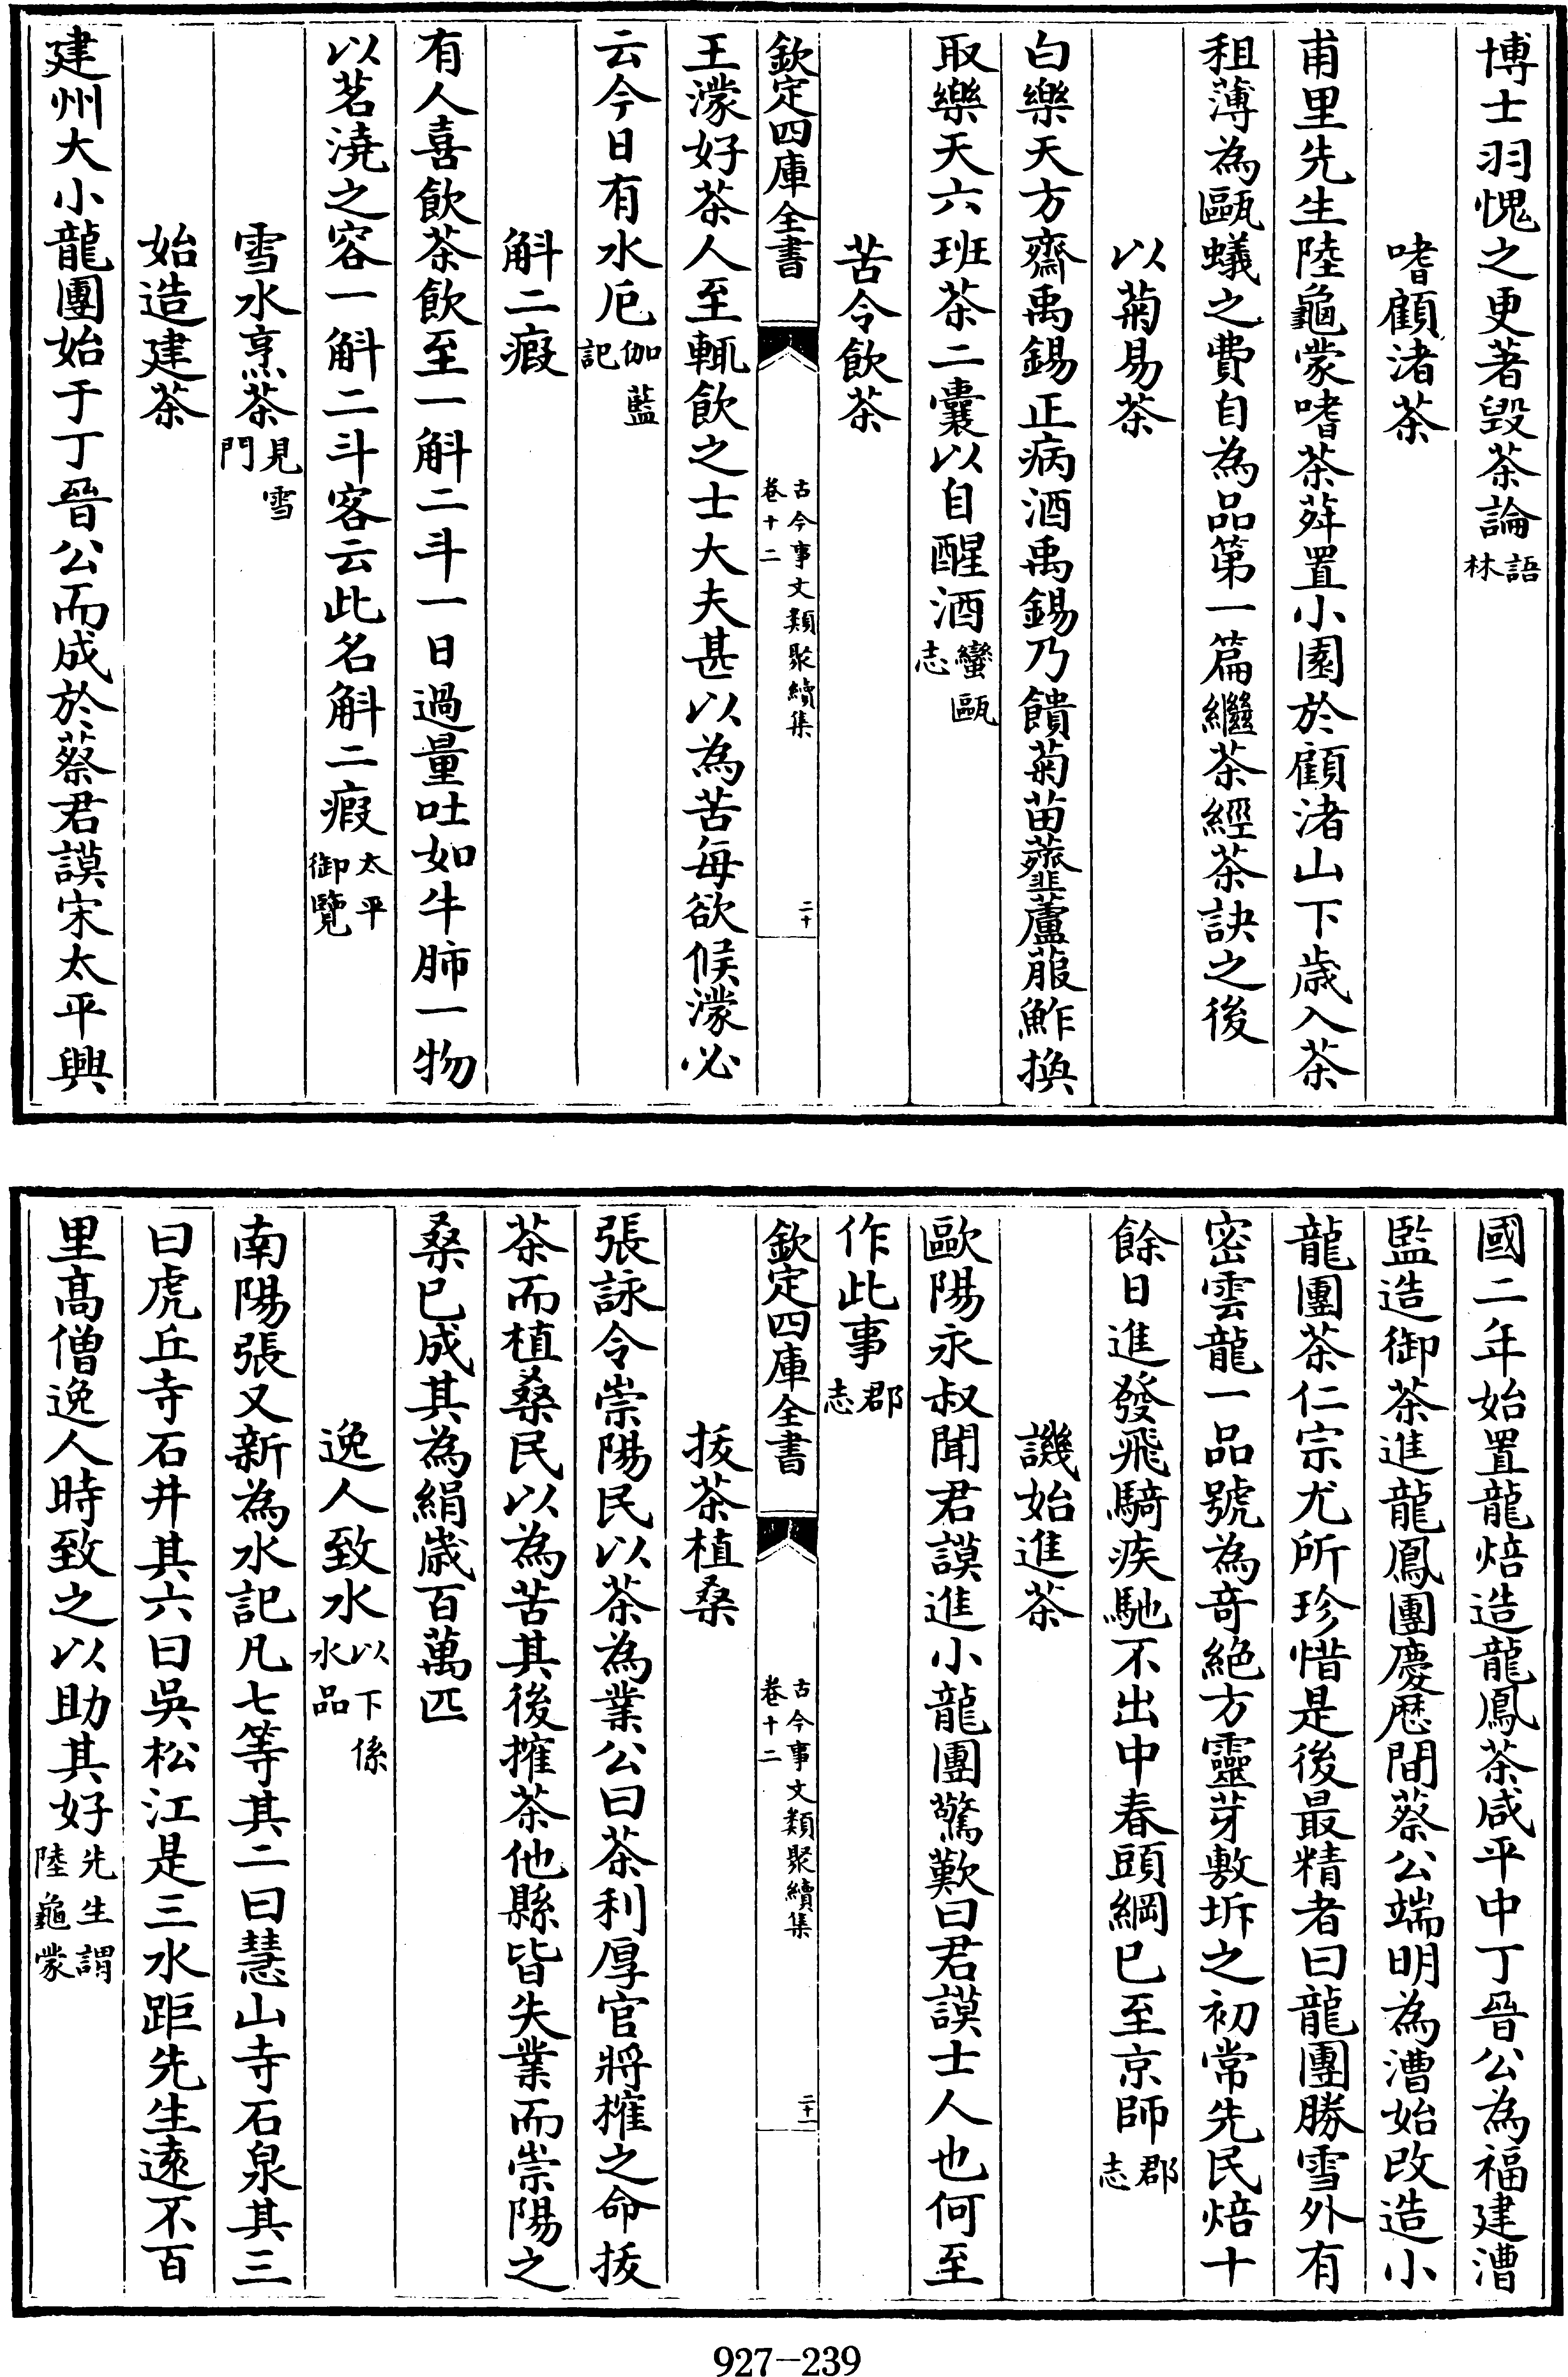 博士羽愧之更著毀茶論語林
嗜顧渚茶
甫里先生陸龜蒙嗜茶荈置小園於顧渚山下歲入茶
租薄為甌蟻之費自為品第一篇繼茶經茶訣之後
以菊易茶
白樂天方齋禹錫正病酒禹錫乃饋菊苗虀蘆菔鮓換
取樂天六班茶二囊以自醒酒蠻甌志
苦令飲茶
欽定四庫全書
古今事文類聚續集
卷十二
二十
王濛好茶人至輒飲之士大夫甚以為苦每欲候濛必
云今日有水厄伽藍記
斛二瘕
有人喜飲茶飲至一斛二斗一日過量吐如牛肺一物
以茗澆之容一斛二斗客云此名斛二瘕太平御覽
雪水烹茶見雪門
始造建茶
建州大小龍團始于丁晉公而成於蔡君謨宋太平興
國二年始置龍焙造龍鳳茶咸平中丁晉公為福建漕
監造御茶進龍鳳團慶歷間蔡公端明為漕始改造小
龍團茶仁宗尤所珍惜是後最精者曰龍團勝雪外有
密雲龍一品號為奇絕方靈芽敷坼之初常先民焙十
餘日進發飛騎疾馳不出中春頭綱已至京師郡志
譏始進茶
歐陽永叔聞君謨進小龍團驚歎曰君謨士人也何至
作此事郡志
欽定四庫全書
古今事文類聚續集
卷十二
二十一
拔茶植桑
張詠令崇陽民以茶為業公曰茶利厚官將榷之命拔
茶而植桑民以為苦其後榷茶他縣皆失業而崇陽之
桑已成其為絹歲百萬匹
逸人致水以下係水品
南陽張又新為水記凡七等其二曰慧山寺石泉其三
曰虎丘寺石井其六曰吳松江是三水距先生遠不百
里高僧逸人時致之以助其好先生謂陸龜蒙
927-239